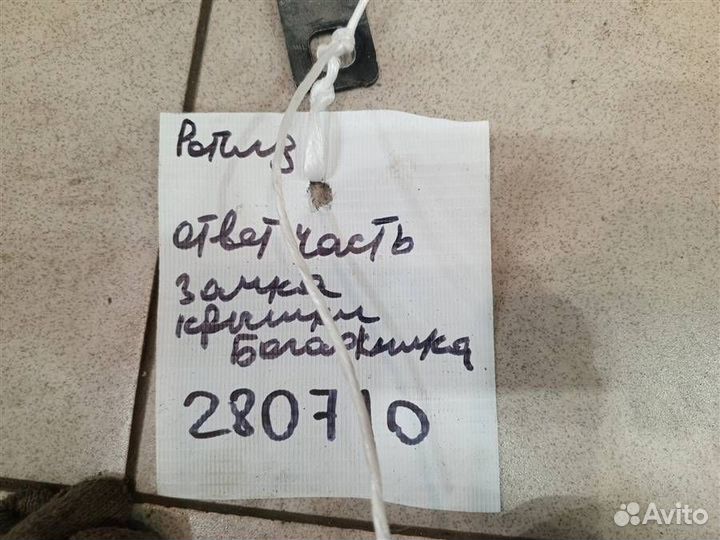 ответ часть
замка
крышки
Багажника
280710
Avito